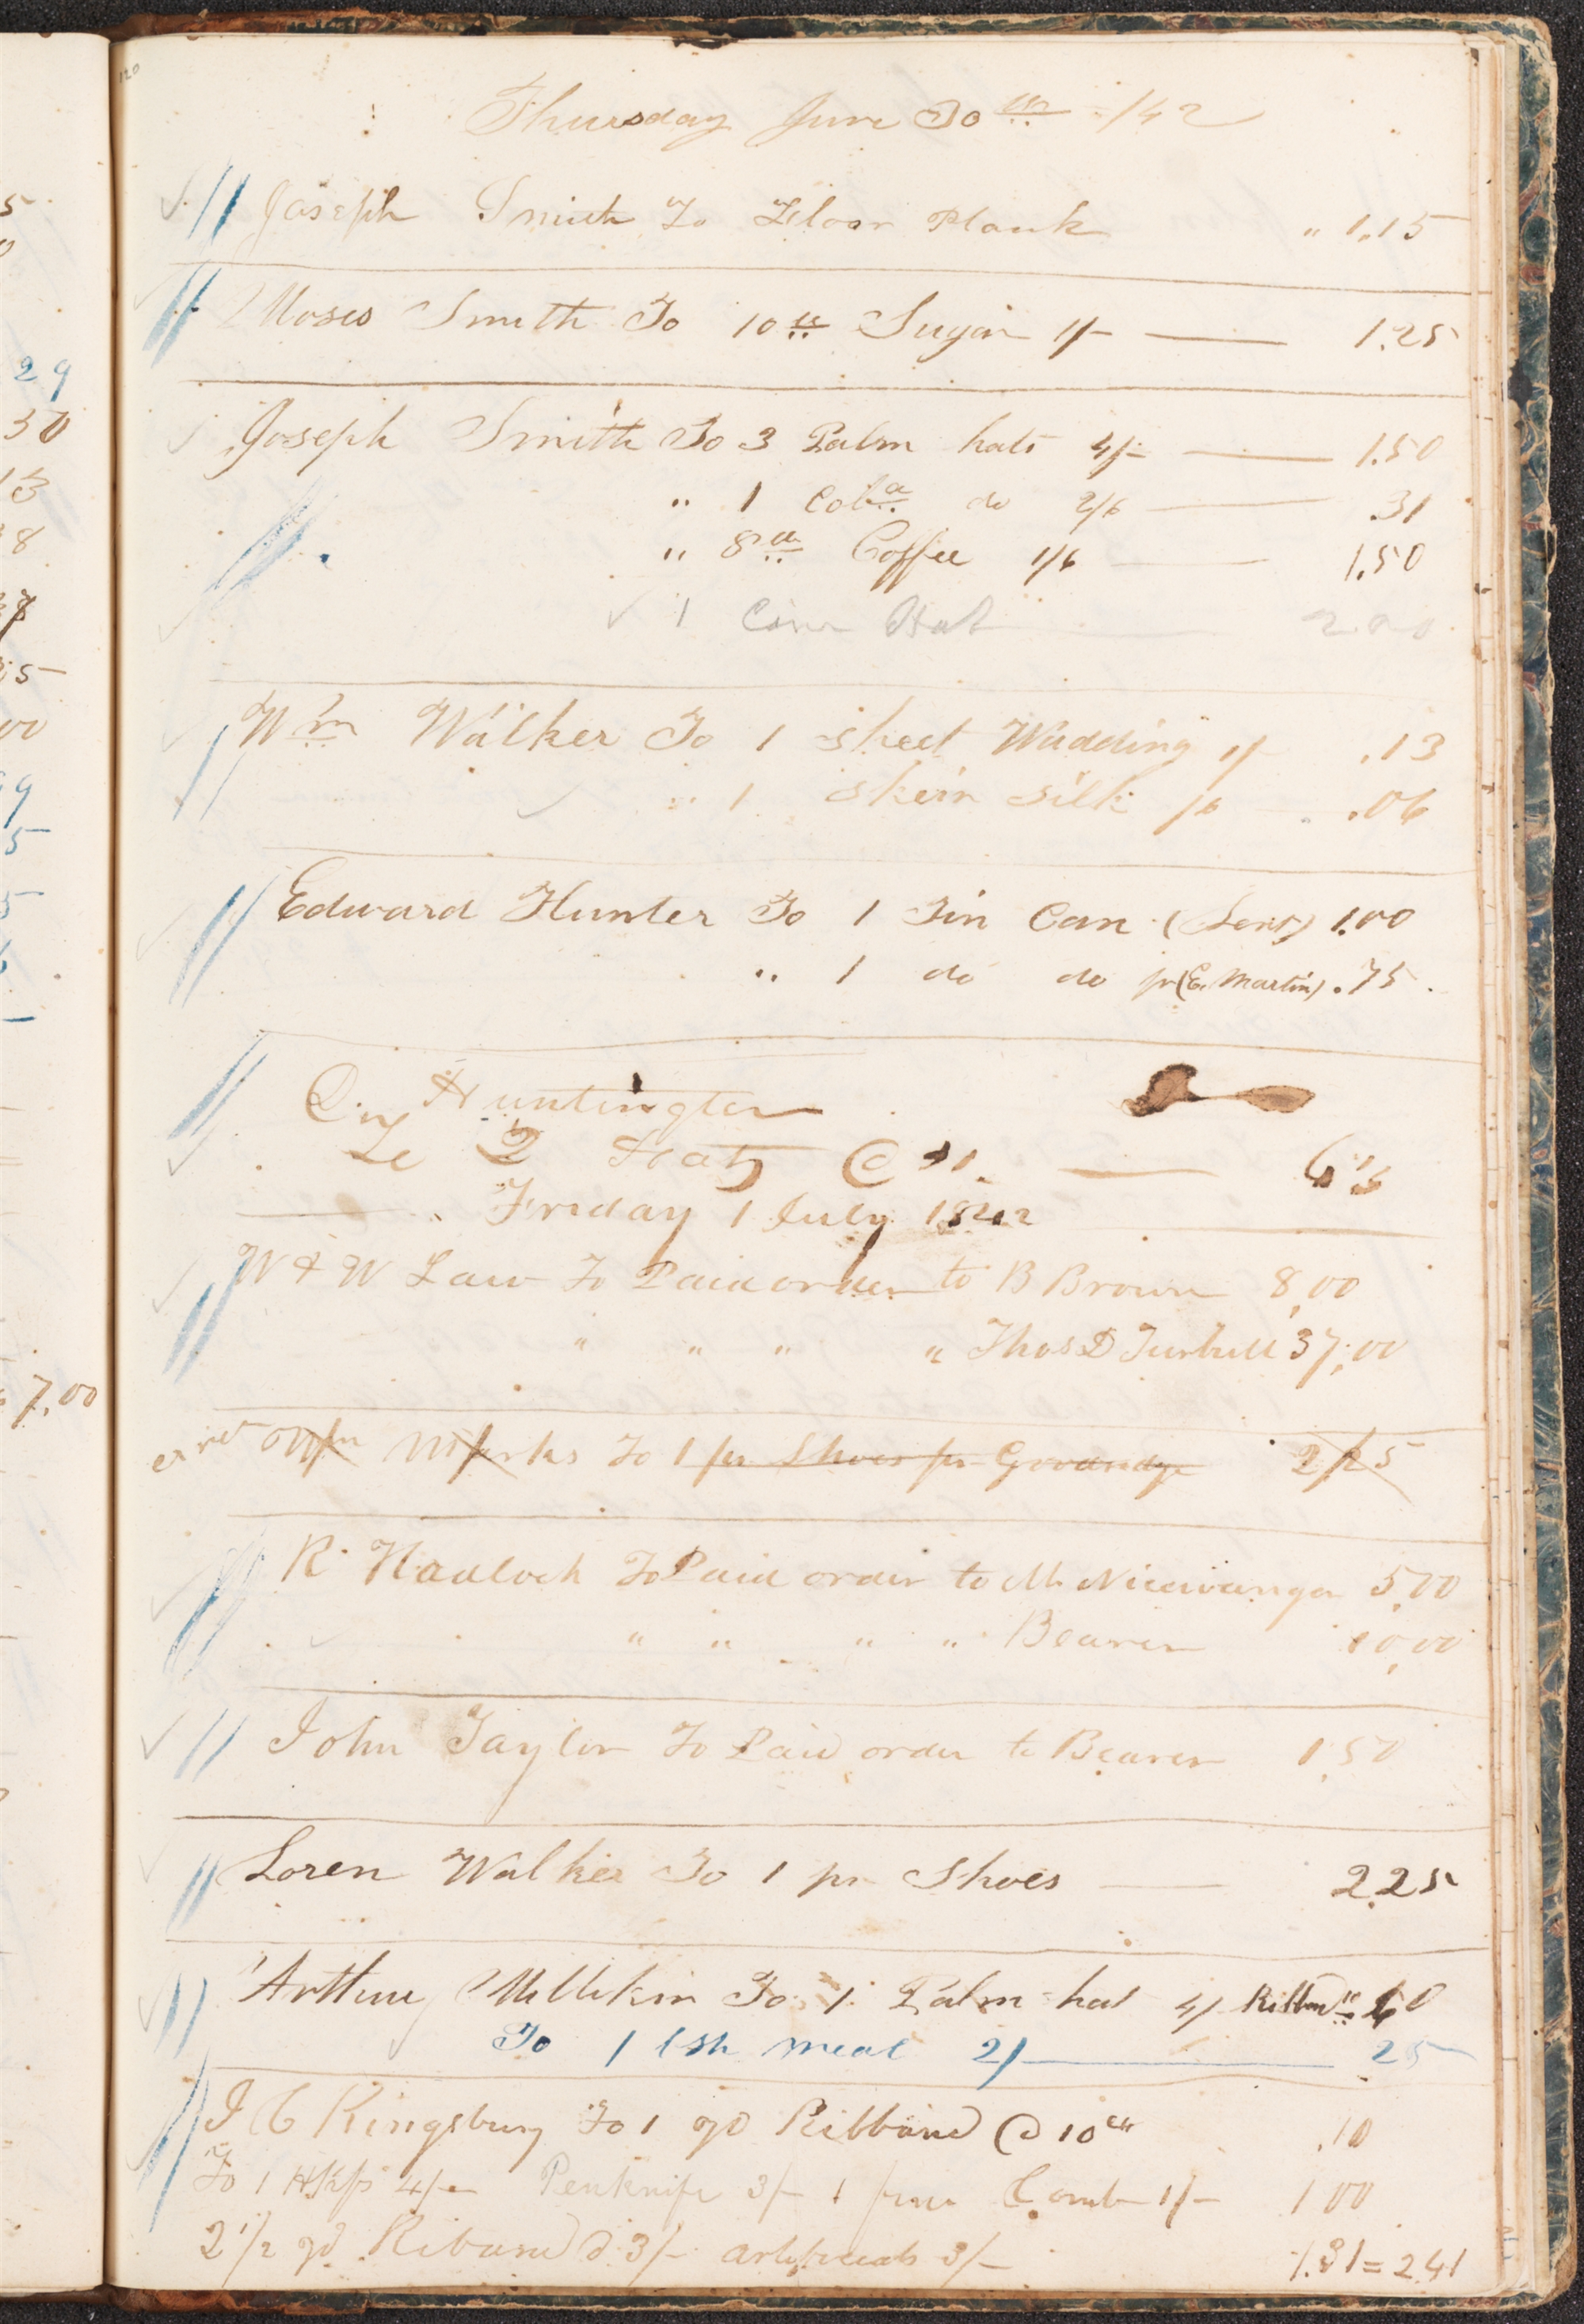 120
Thursday June 30th /42
Joseph Smith To Floor Plank " 1.15
Moses Smith To 10 lb Sugar 1/- 1.25
Joseph Smith To 3 Palm hats 4/- 1.50
" 1 Cold do 2/6 .31
" 8 lb Coffee 1/6 1.50
1 Hat 2.00
Wm Walker To 1 sheet Wadding 1/- .13
" 1 skein silk /6 .06
Edward Hunter To 1 Tin Can 1.00
" 1 do do pr (E. Martin) .75
Huntington
To 2 @
Friday 1 July 1842
W & W Law To Paid order to B Brown 8,00
" " " " Thos D Turbull 37,00
error Wm Marks To 1 pr Shoes pr 2,25
R. Hadlock To Paid order to M. 5,00
" " " " Bearer 10,00
John Taylor To Paid order to Bearer 1,50
Loren Walker To 1 pr Shoes 2.25
Arthur Millikin To 1 Palm hat 4/ Ribbon 60
To 1 bsh meal 2/ 25
J C Kingsbury To 1 yd Ribband @ 10 cts .10
To 1 Hkfs 4/- Penknife 3/- 1 fine Comb 1/- 1 00
2 1/2 yd Riband @ 3/- 3/- 1.31 = 2.41
29
30
13
8
7,00